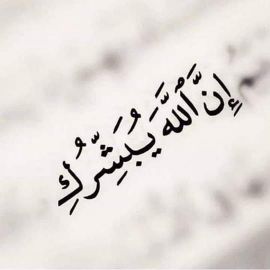 إِنَّ اللَّهَ يُبَشِّرُكِ